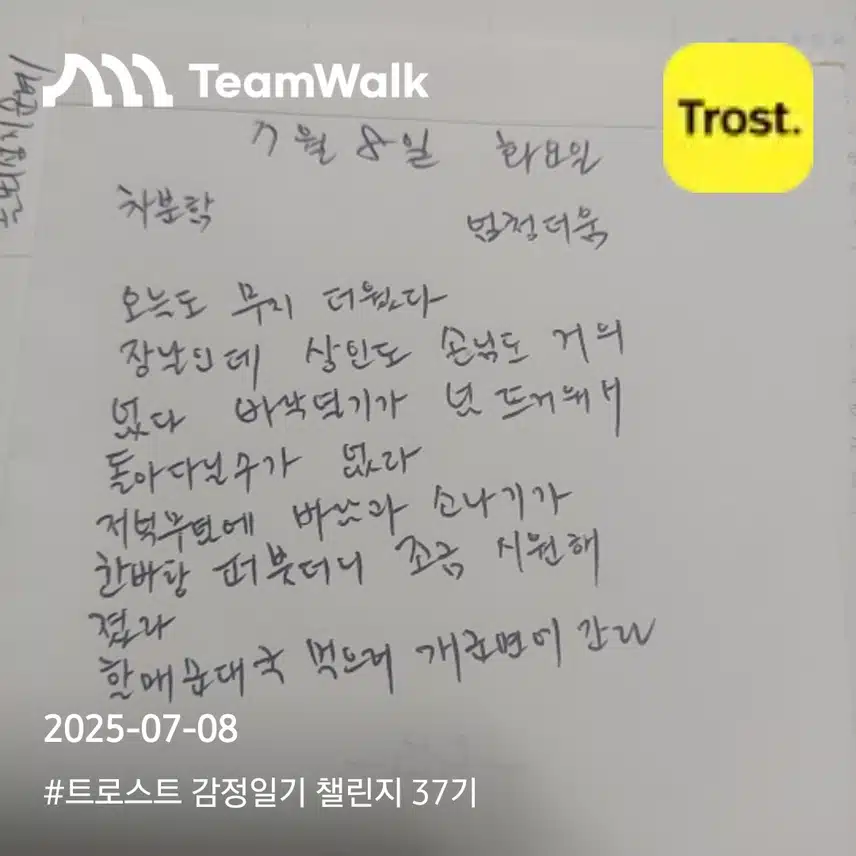 TeamWalk
Trost.
7월 8일 화요일
차분함 엄청더움
오늘도 무지 더웠다
장날인데 상인도 손님도 거의
없다 바닥열기가 넘 뜨거워서
돌아다닐수가 없다
저녁무렵에 바람과 소나기가
한바탕 퍼붓더니 조금 시원해
졌다
할매순대국 먹으러 개군면에 간다
2025-07-08
#트로스트 감정일기 챌린지 37기